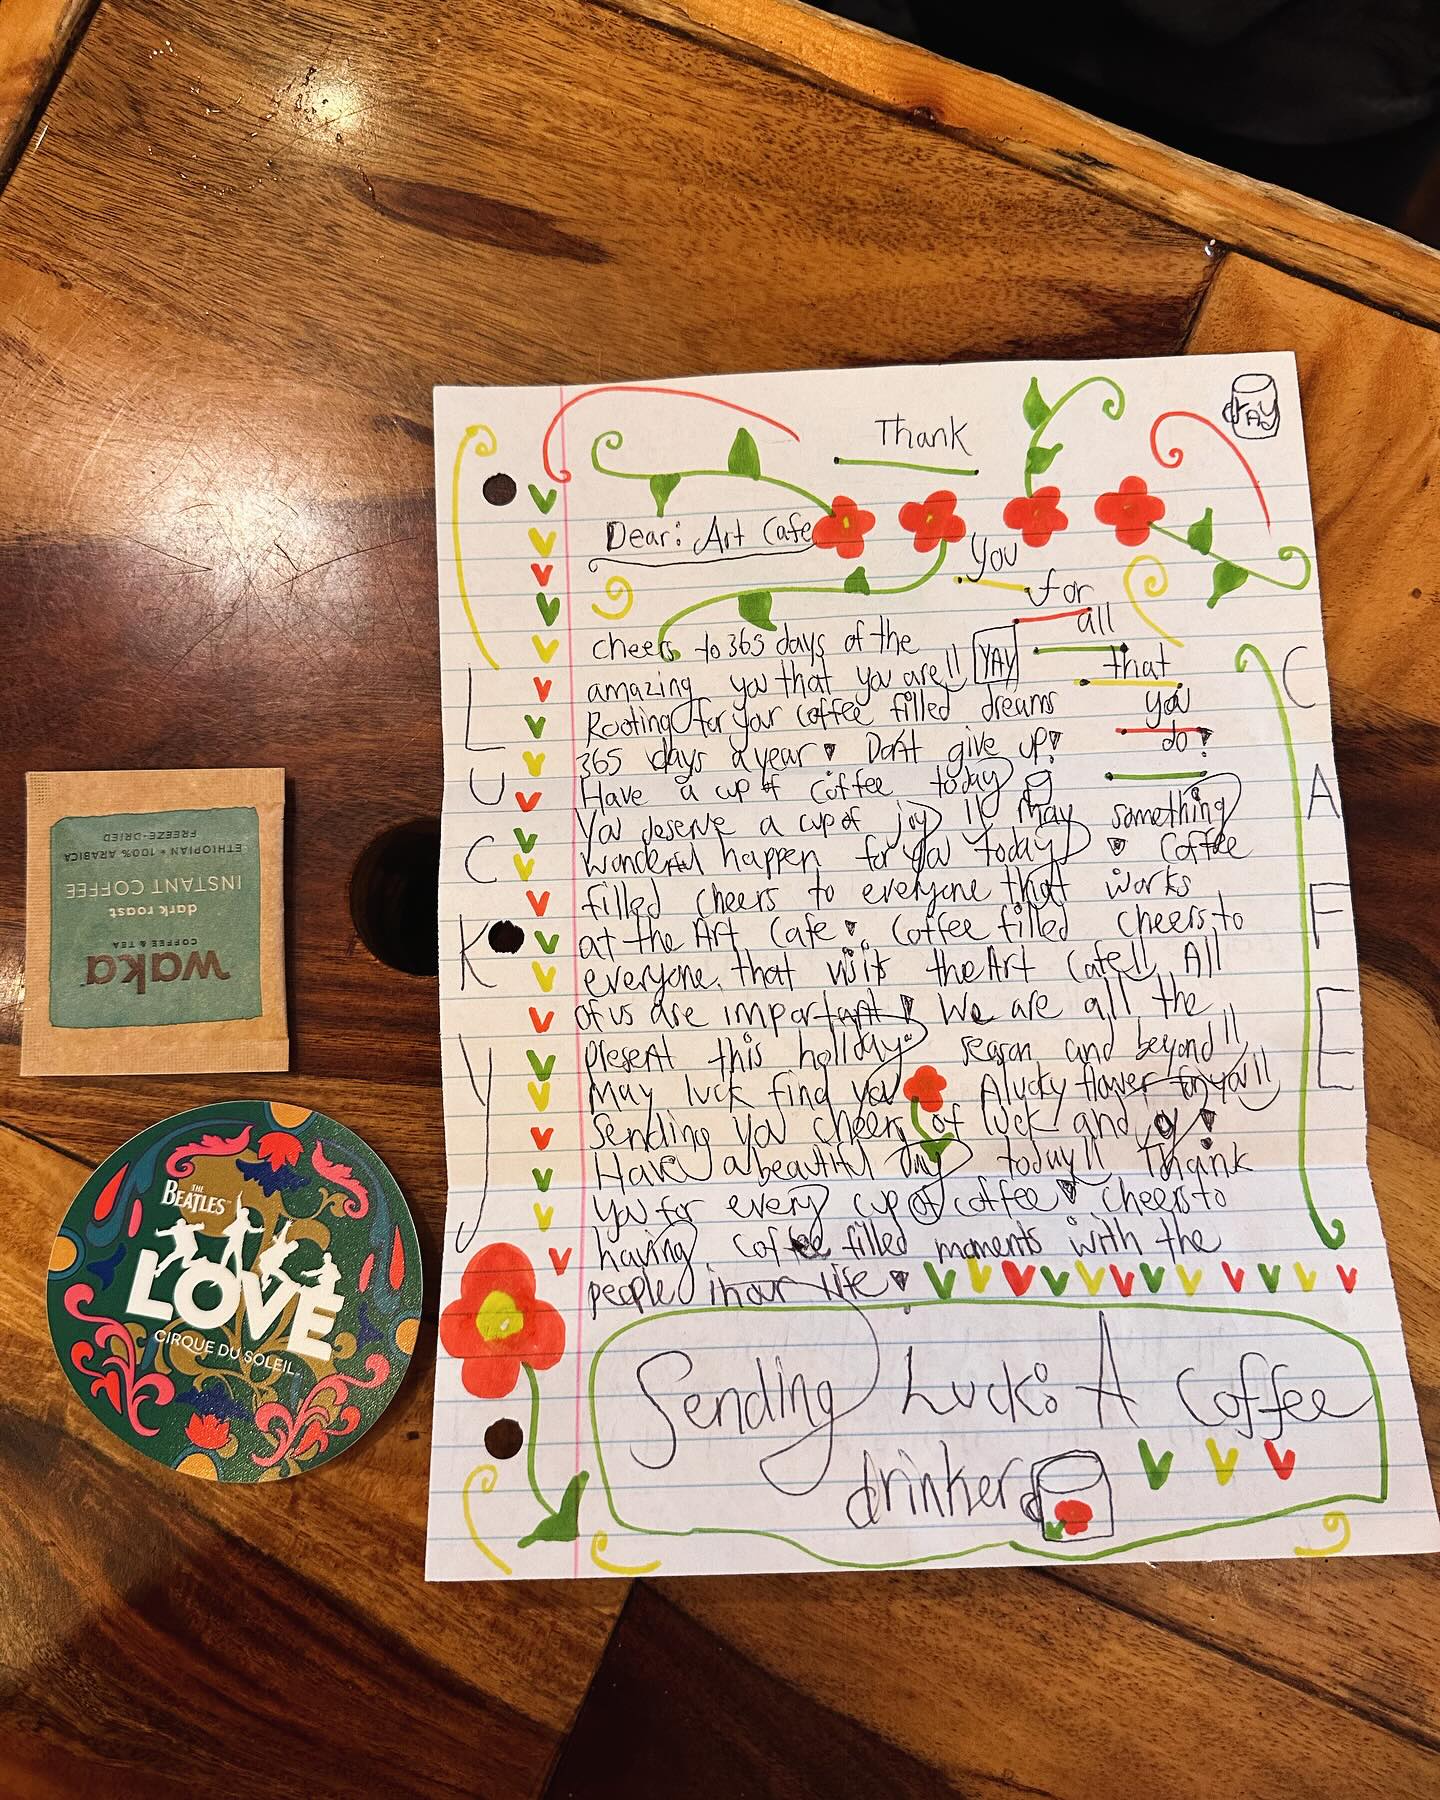 YAY
Thank
Dear: Art Cafe
You
for
all
that
you
do!
cheers to 365 days of the
amazing you that you are!! YAY
Rooting for your coffee filled dreams
365 days a year! Don't give up!
Have a cup of coffee today
You deserve a cup of joy!! May something
wonderful happen for you today! Coffee
filled cheers to everyone that works
at the Art Cafe! Coffee filled cheers to
everyone that visits the Art Cafe!! All
of us are important! We are all the
present this holiday season and beyond!!
May luck find you A lucky flower for you!!
Sending you cheers of luck and joy!
Have a beautiful day today!! Thank
you for every cup of coffee! Cheers to
having coffee filled moments with the
people in our life!
Sending Luck: A Coffee
drinker
LUCKY
CAFE
waka
COFFEE & TEA
dark roast
INSTANT COFFEE
ETHIOPIAN • 100% ARABICA
FREEZE-DRIED
THE
BEATLES
LOVE
CIRQUE DU SOLEIL